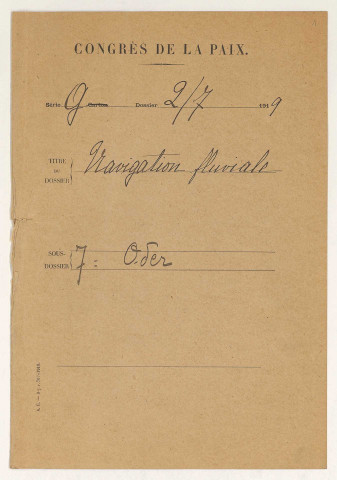 CONGRÈS DE LA PAIX.
Série G Carton Dossier 2/7 1919
TITRE DU DOSSIER Navigation fluviale
SOUS-DOSSIER 7= Oder